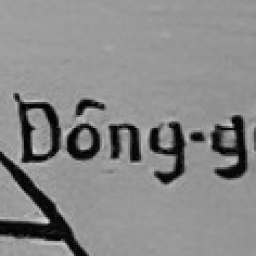 Dông-g